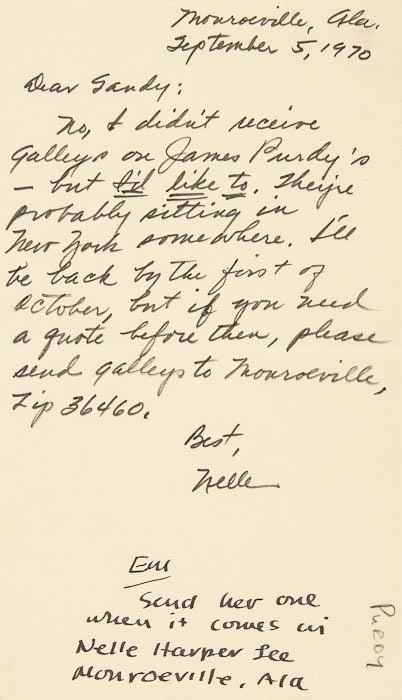 Monroeville, Ala.
September 5, 1970
Dear Sandy:
No, I didn't receive
galleys on James Purdy's
— but I'd like to. They're
probably sitting in
New York somewhere. I'll
be back by the first of
October, but if you need
a quote before then, please
send galleys to Monroeville,
Zip 36460.
Best,
Nelle
Em
Send her one
when it comes in
Nelle Harper Lee
Monroeville, Ala
Purdy